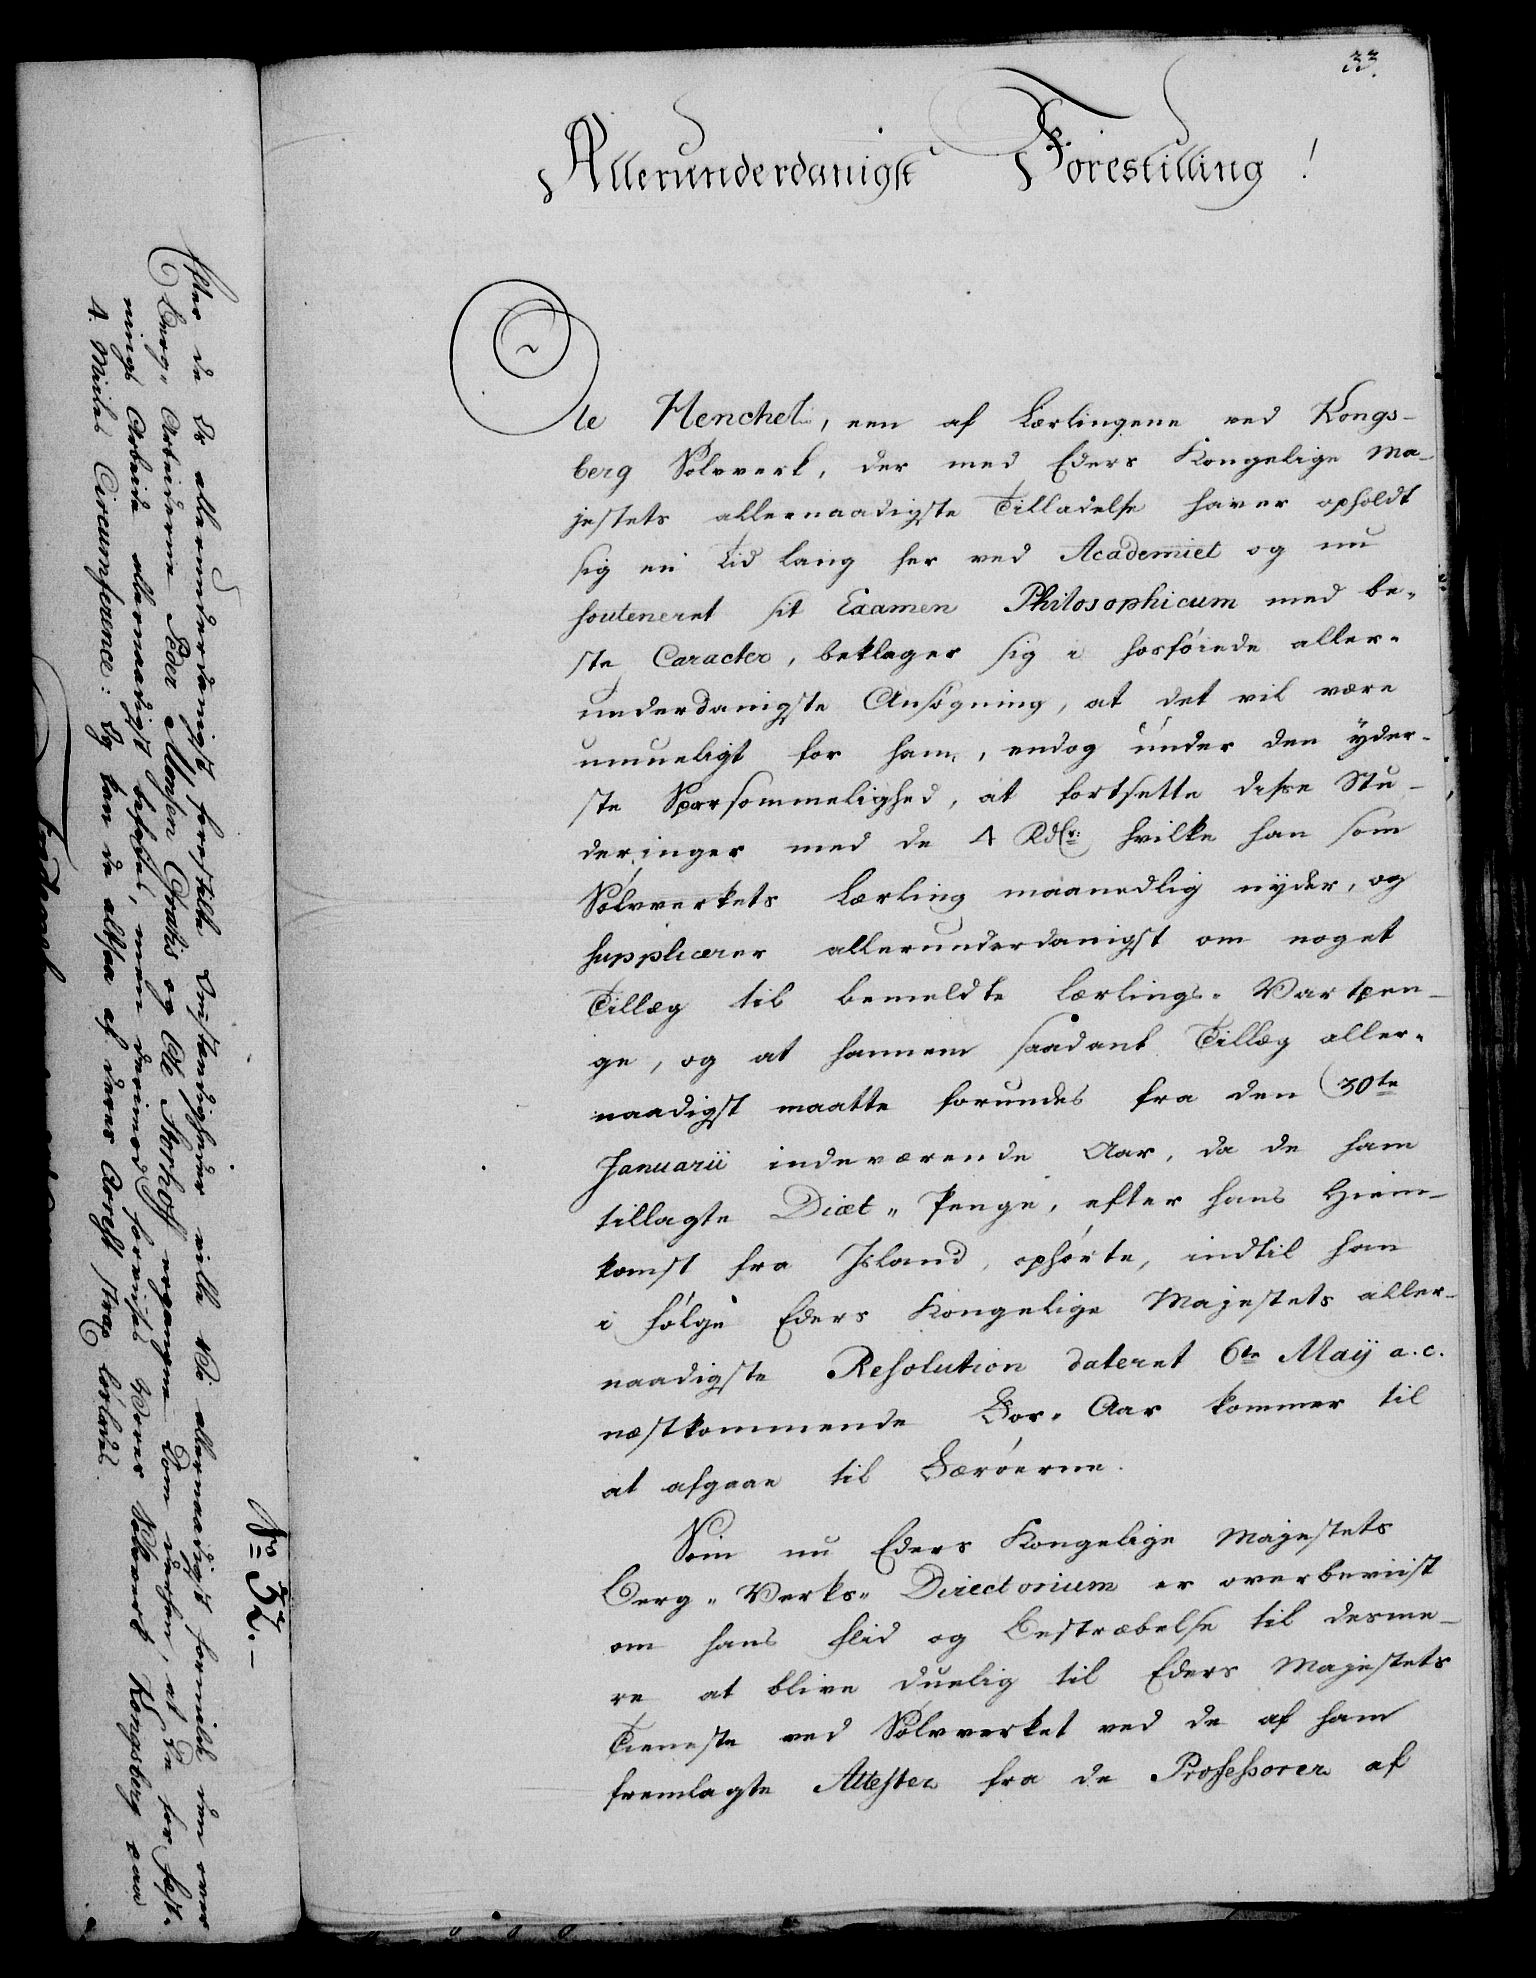 33.
Allerunderdanigst Forestilling!
Ole Henchel, een af Lærlingene ved Kongs-
berg Sølvverk, der med Eders Kongelige Ma-
jestets allernaadigste Tilladelse haver opholdt
sig en Tid lang her ved Academiet og nu
souteneret sit Examen Philosophicum med be-
ste Caracter, beklager sig i hosføiede aller-
underdanigste Ansøgning, at det vil være
umueligt for ham, endog under den yder-
ste Sparsommelighed, at fortsette disse Stu-
deringer med de 4 Rdlr: hvilke han som
Sølvverkets Lærling maanedlig nyder, og
supplicerer allerunderdanigst om noget
Tillæg til bemeldte Lærlings-Vartpen-
ge, og at hannem saadant Tillæg aller-
naadigst maatte forundes fra den 30te
Januarii indeværende Aar, da de ham
tillagte Diæt-Penge, efter hans Hiem-
komst fra Island, ophørte, indtil han
i følge Eders Kongelige Majestets aller-
naadigste Resolution dateret 6te Maij a.c.
næstkommende For-Aar kommer til
at afgaae til Færøerne.
Som nu Eders Kongelige Majestets
Berg-Verks-Directorium er overbeviist
om hans Flid og Bestræbelse til desme-
re at blive duelig til Eders Majestets
Tieneste ved Sølvverket ved de af ham
fremlagte Attester fra de Professorer af
No 32.
Efter de Os allerunderdanigst forestilte Omstændigheder ville Vi allernaadigst formilde den over
Berg-Arbeiderne Peder Monsen og Ole Storhoff ergangne Dom
nings Arbeide allernaadigst befriet, men derimod forvises Vores Sølvverk Kongsberg paa
4. Miiles Circumference: Og kan de altsaa af deres Arrest strax løslades.